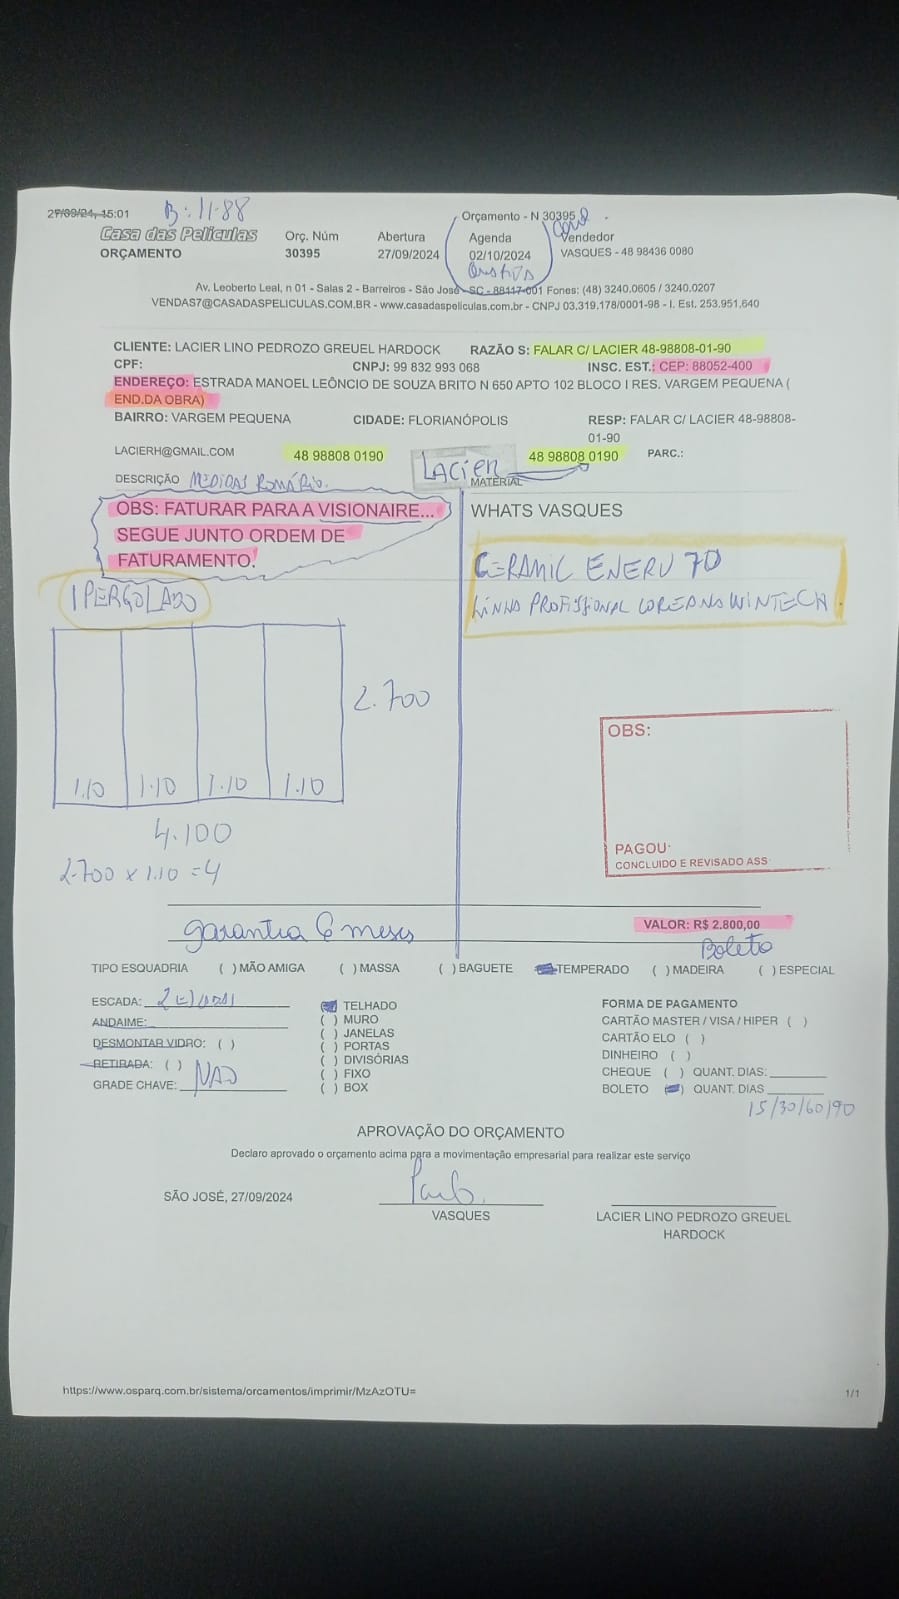 27/09/24, 15:01
B: 11-88
Orçamento - N 30395
Casa das Películas
ORÇAMENTO
Orç. Núm
30395
Abertura
27/09/2024
Agenda
02/10/2024
Vendedor
VASQUES - 48 98436 0080
Av. Leoberto Leal, n 01 - Salas 2 - Barreiros - São José - SC - 88117-001 Fones: (48) 3240.0605 / 3240.0207
VENDAS7@CASADASPELICULAS.COM.BR - www.casadaspeliculas.com.br - CNPJ 03.319.178/0001-98 - I. Est. 253.951.640
CLIENTE: LACIER LINO PEDROZO GREUEL HARDOCK RAZÃO S: FALAR C/ LACIER 48-98808-01-90
CPF: CNPJ: 99 832 993 068 INSC. EST.: CEP: 88052-400
ENDEREÇO: ESTRADA MANOEL LEÔNCIO DE SOUZA BRITO N 650 APTO 102 BLOCO I RES. VARGEM PEQUENA (
END.DA OBRA)
BAIRRO: VARGEM PEQUENA CIDADE: FLORIANÓPOLIS RESP: FALAR C/ LACIER 48-98808-
01-90
LACIERH@GMAIL.COM 48 98808 0190 Lacier 48 98808 0190 PARC.:
DESCRIÇÃO MEDIDAS ROMÁRIO. MATERIAL
OBS: FATURAR PARA A VISIONAIRE...
SEGUE JUNTO ORDEM DE
FATURAMENTO.
WHATS VASQUES
CERAMIC ENERU 70
LINHA PROFISSIONAL COREANO WINTECH
1 PERGOLADO
2.700
1.10 1.10 1.10 1.10
4.100
2.700 x 1.10 = 4
OBS:
PAGOU:
CONCLUIDO E REVISADO ASS:
garantia 6 meses
VALOR: R$ 2.800,00
Boleto
TIPO ESQUADRIA ( ) MÃO AMIGA ( ) MASSA ( ) BAGUETE TEMPERADO ( ) MADEIRA ( ) ESPECIAL
ESCADA:
ANDAIME:
DESMONTAR VIDRO: ( )
RETIRADA: ( )
GRADE CHAVE: NAO
TELHADO
( ) MURO
( ) JANELAS
( ) PORTAS
( ) DIVISÓRIAS
( ) FIXO
( ) BOX
FORMA DE PAGAMENTO
CARTÃO MASTER / VISA / HIPER ( )
CARTÃO ELO ( )
DINHEIRO ( )
CHEQUE ( ) QUANT. DIAS:
BOLETO QUANT. DIAS
15/30/60/90
APROVAÇÃO DO ORÇAMENTO
Declaro aprovado o orçamento acima para a movimentação empresarial para realizar este serviço
SÃO JOSÉ, 27/09/2024
VASQUES
LACIER LINO PEDROZO GREUEL
HARDOCK
https://www.osparq.com.br/sistema/orcamentos/imprimir/MzAzOTU=
1/1